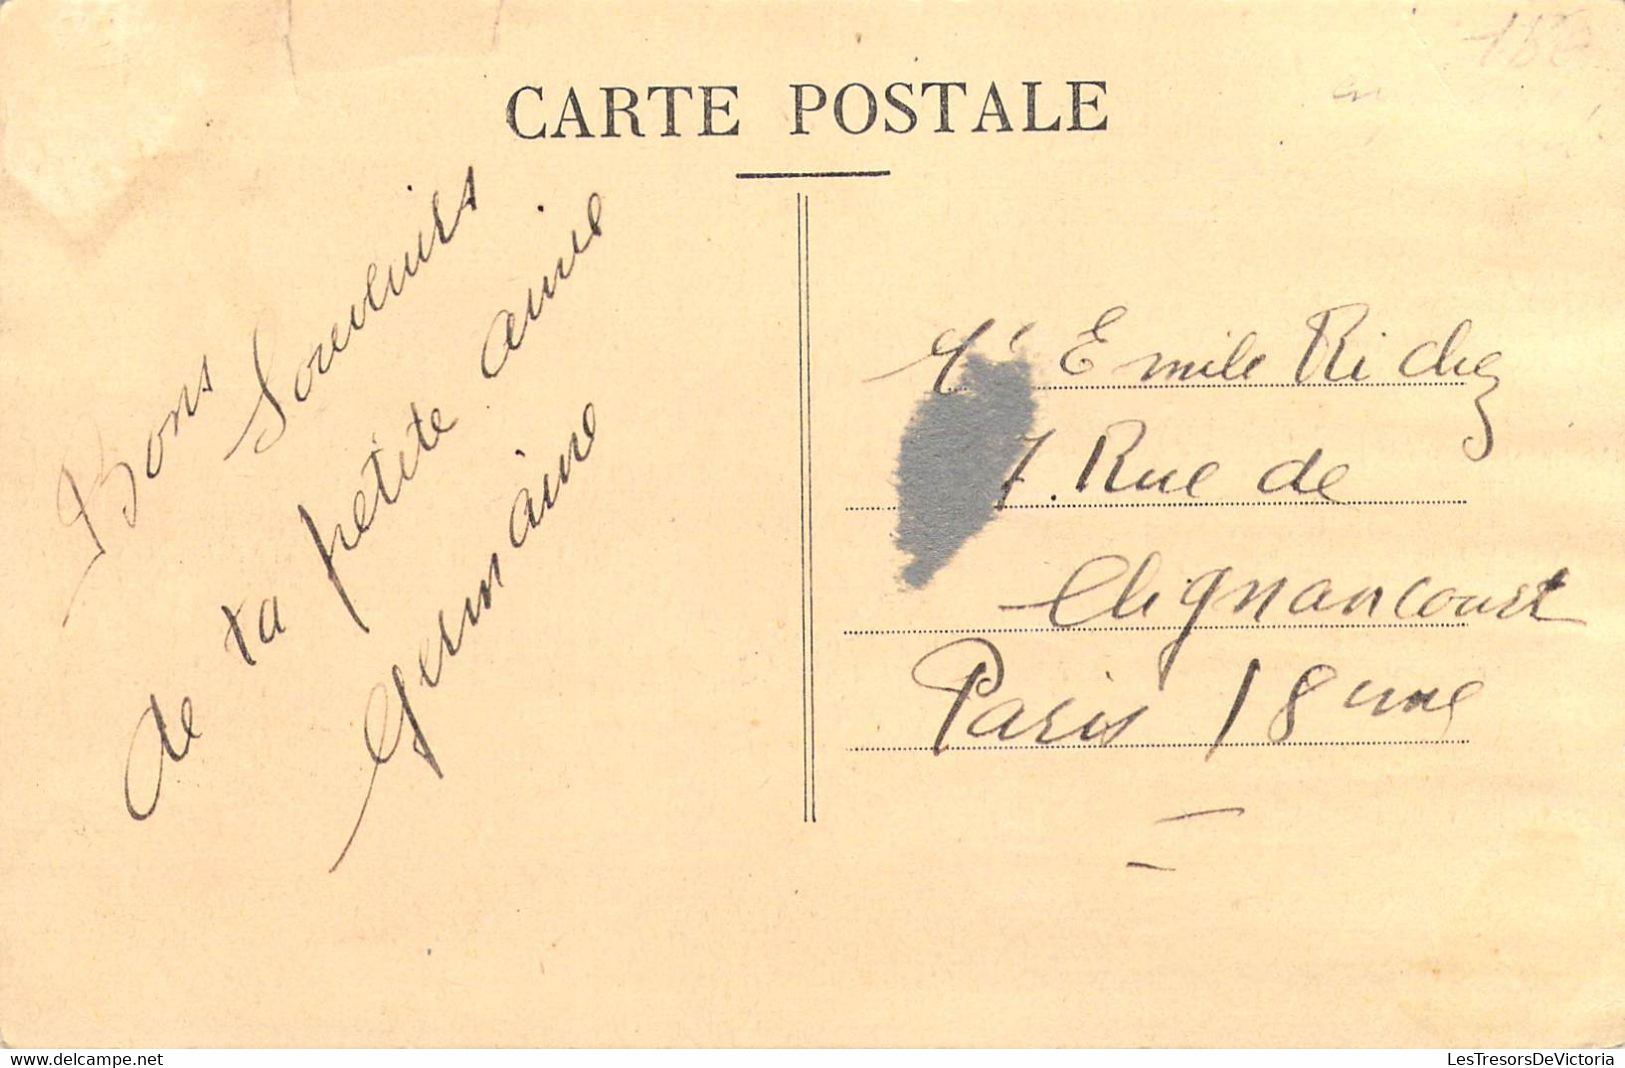 CARTE POSTALE
Bons
Souvenirs
de ta petite amie
Germaine
Mr Emile Richez
7. Rue de
Clignancourt
Paris 18eme
www.delcampe.net
LesTresorsDeVictoria